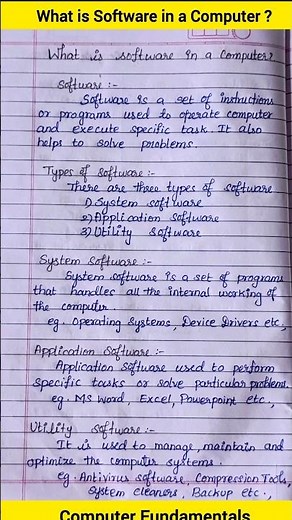 What is Software in a Computer ?
What is software in a Computer?
Software :-
Software is a set of instructions
or programs used to operate computer
and execute specific task. It also
helps to solve problems.
Types of Software :-
There are three types of software
1) System software
2) Application software
3) Utility Software
System Software :-
System Software is a set of programs
that handles all the internal working of
the computer.
eg. Operating Systems, Device Drivers etc,
Application Software :-
Application Software used to perform
specific tasks or solve particular problems.
eg. MS Word, Excel, Powerpoint etc.,
Utility Software :-
It is used to manage, maintain and
optimize the computer systems.
eg. Antivirus software, Compression Tools,
System cleaners, Backup etc.,
Computer Fundamentals